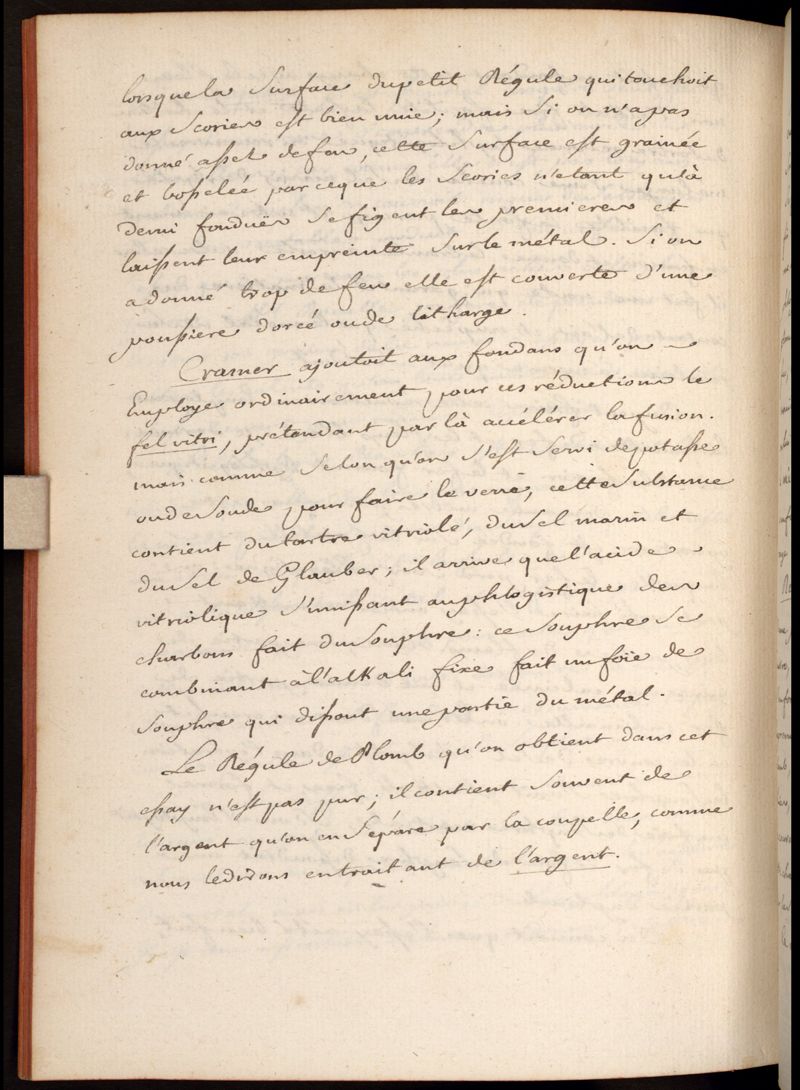 lorsquela Surface dupetit Régule quitouchoit
aux Scories est bien unie; mais Si on n'apas
donné assés defeu, cette Surface est grainée
et bosselée parceque les Scories n'etant qu'à
demi fonduës Sefigent les premieres et
laissent leur empreinte Surle métal. Si on
adonné trop de feu elle est couverte d'une
poussiere dorcé oude litharge.
Cramer ajoutoit aux fondans qu'on
Employe ordinairement pour ces réductions le
fel vitri, prétendant par là accélérer lafusion.
mais comme Selon qu'on S'est Servi depotasse
oudeSoude pour faire leverre, cetteSubstance
contient dutartre vitriolé, duSel marin et
duSel de Glauber; il arrive quel'acide
vitriolique S'unissant auphlogistique des
charbons fait duSouphre: ceSouphre Se
combinant àl'alkali fixe fait unfoïe de
Souphre qui dissout unepartie du métal.
Le Régule dePlomb qu'on obtient dans cet
essay n'est pas pur; il contient Souvent de
l'argent qu'on enSépare par la coupelle, comme
nous ledirons entraitant de l'argent.